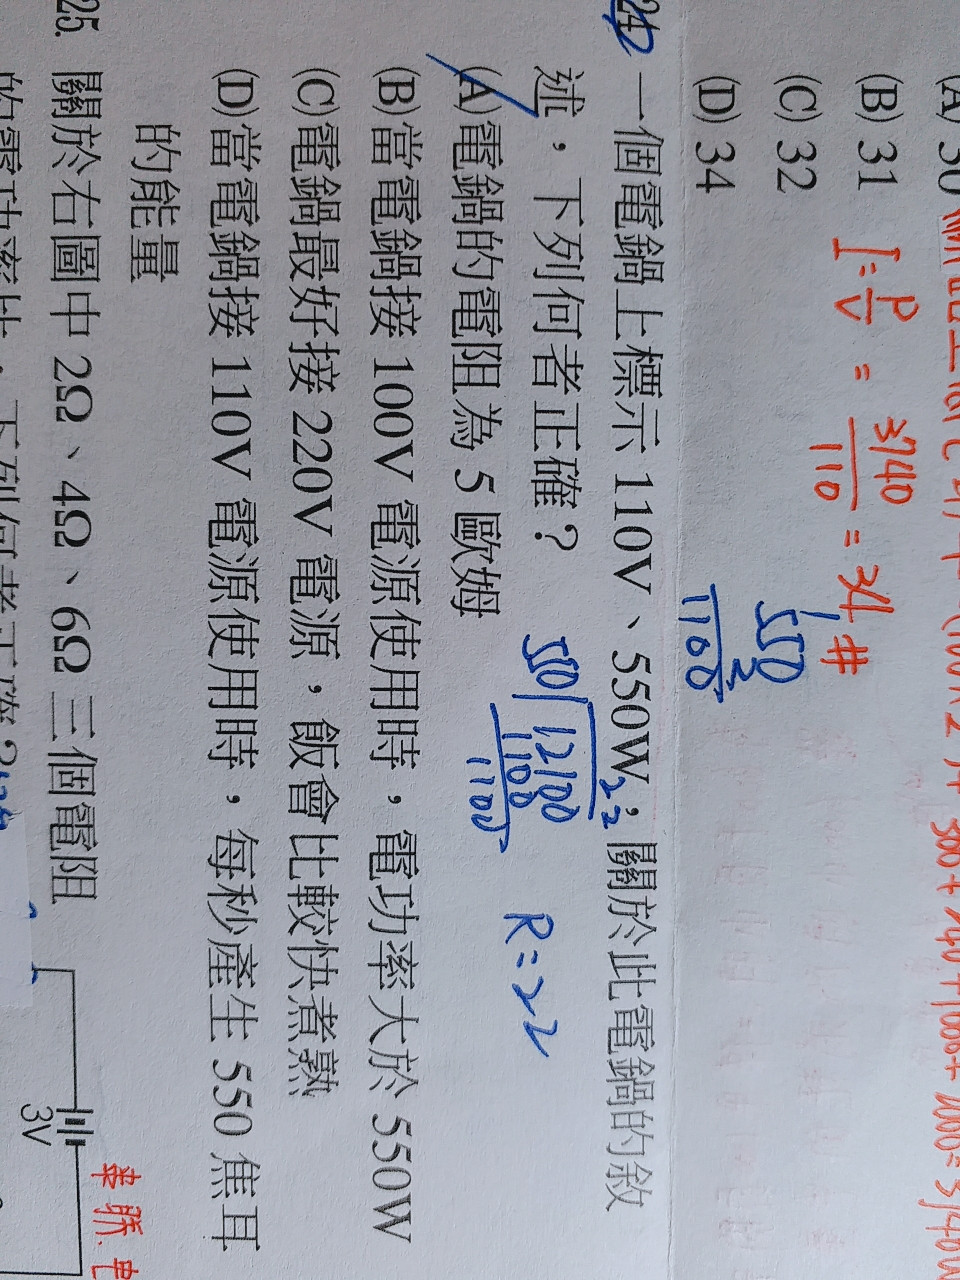 (A) 30
(B) 31
(C) 32
(D) 34
I = P/V = 3740/110 = 34 #
550
2
1100
24. 一個電鍋上標示 110V、550W,關於此電鍋的敘
述,下列何者正確?
22
550 12100
1100
1100
R=22
(A) 電鍋的電阻為 5 歐姆
(B) 當電鍋接 100V 電源使用時,電功率大於 550W
(C) 電鍋最好接 220V 電源,飯會比較快煮熟
(D) 當電鍋接 110V 電源使用時,每秒產生 550 焦耳
的能量
25. 關於右圖中 2Ω、4Ω、6Ω 三個電阻
3V